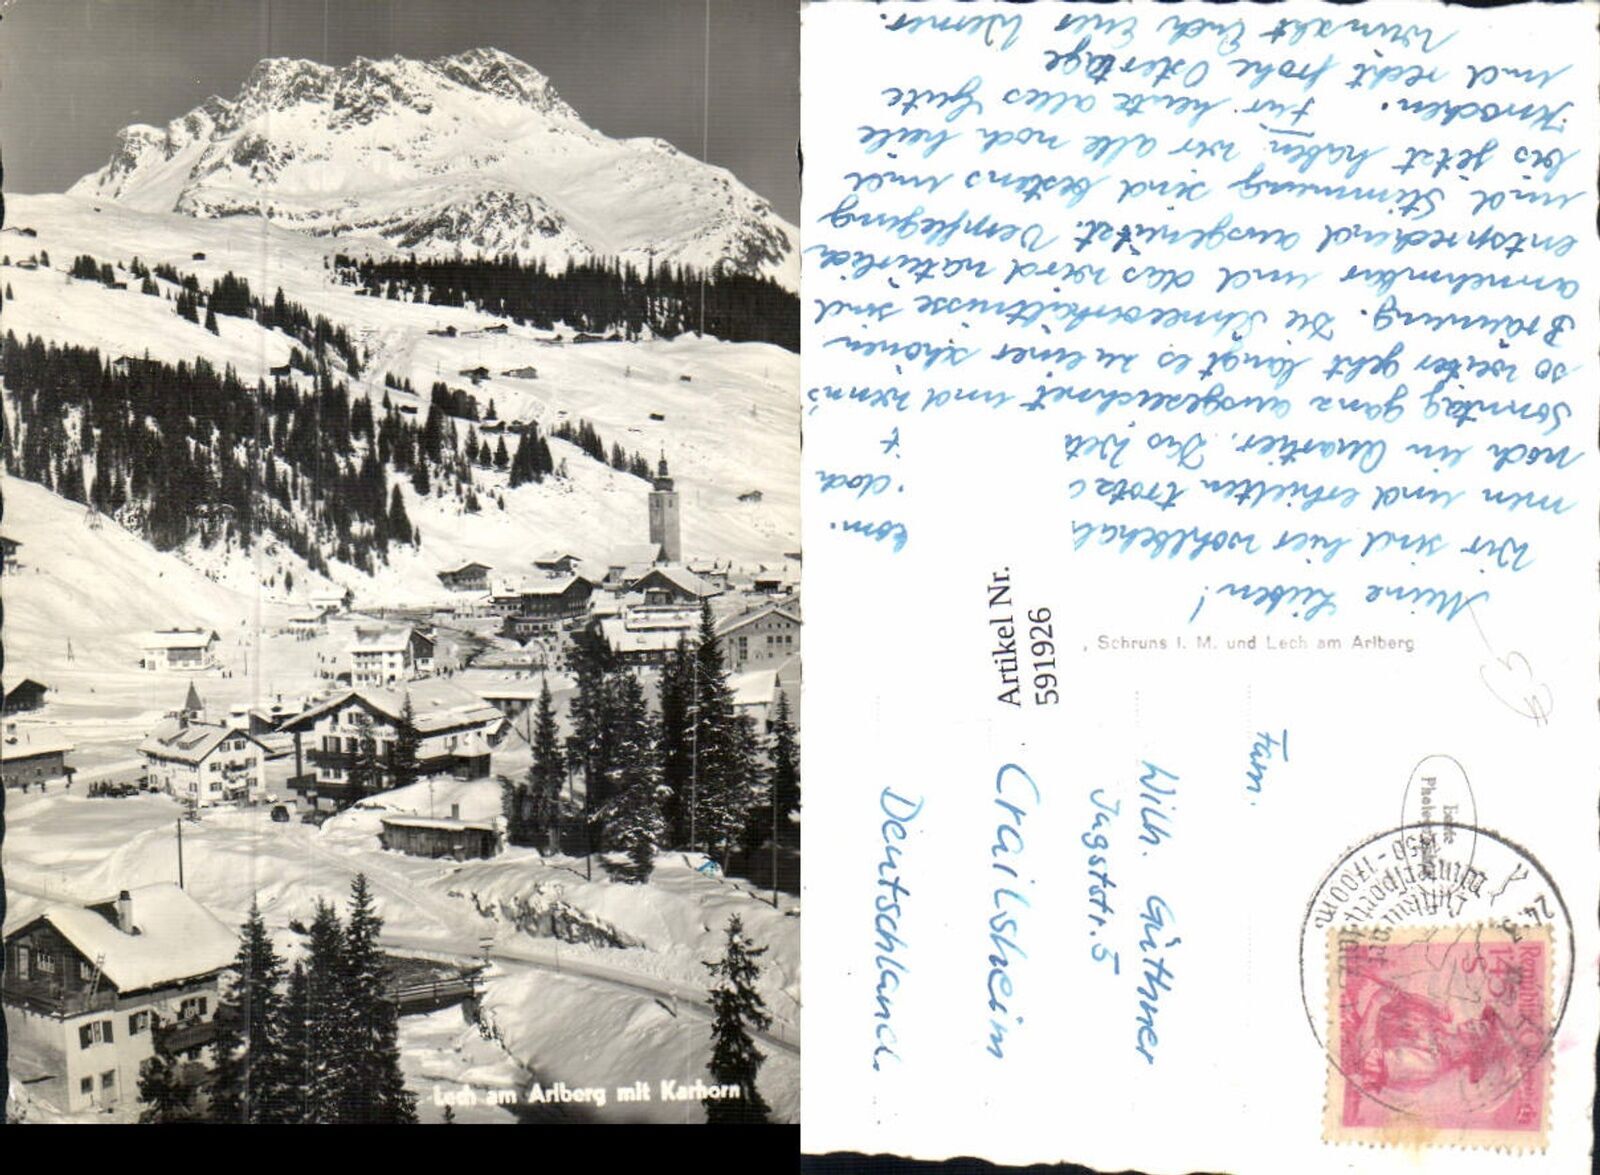 Lech am Arlberg mit Karhorn
Meine Lieben!
Wir sind hier wohlbehal
kom.
men und erhielten trotz
doch
noch ein Quartier. Das Wet
Sonntag ganz ausgezeichnet und wenn's
so weiter geht langt es zu einer schönen
Bräunung. Die Schneeverhältnisse sind
annehmbar und das wird natürlich
entsprechend ausgenützt. Verpflegung
und Stimmung sind bestens und
bis jetzt haben wir alle noch heile
Knochen. Für heute alles Gute
und recht frohe Ostertage
wünscht Euch Euer Werner.
Artikel Nr.
591926
, Schruns i. M. und Lech am Arlberg
Fam.
Wilh. Güthner
Jagststr. 5
Crailsheim
Deutschland.
Echte
Luftkurort
Wintersportplatz
1450-1700 m
24.3.
1.45
S